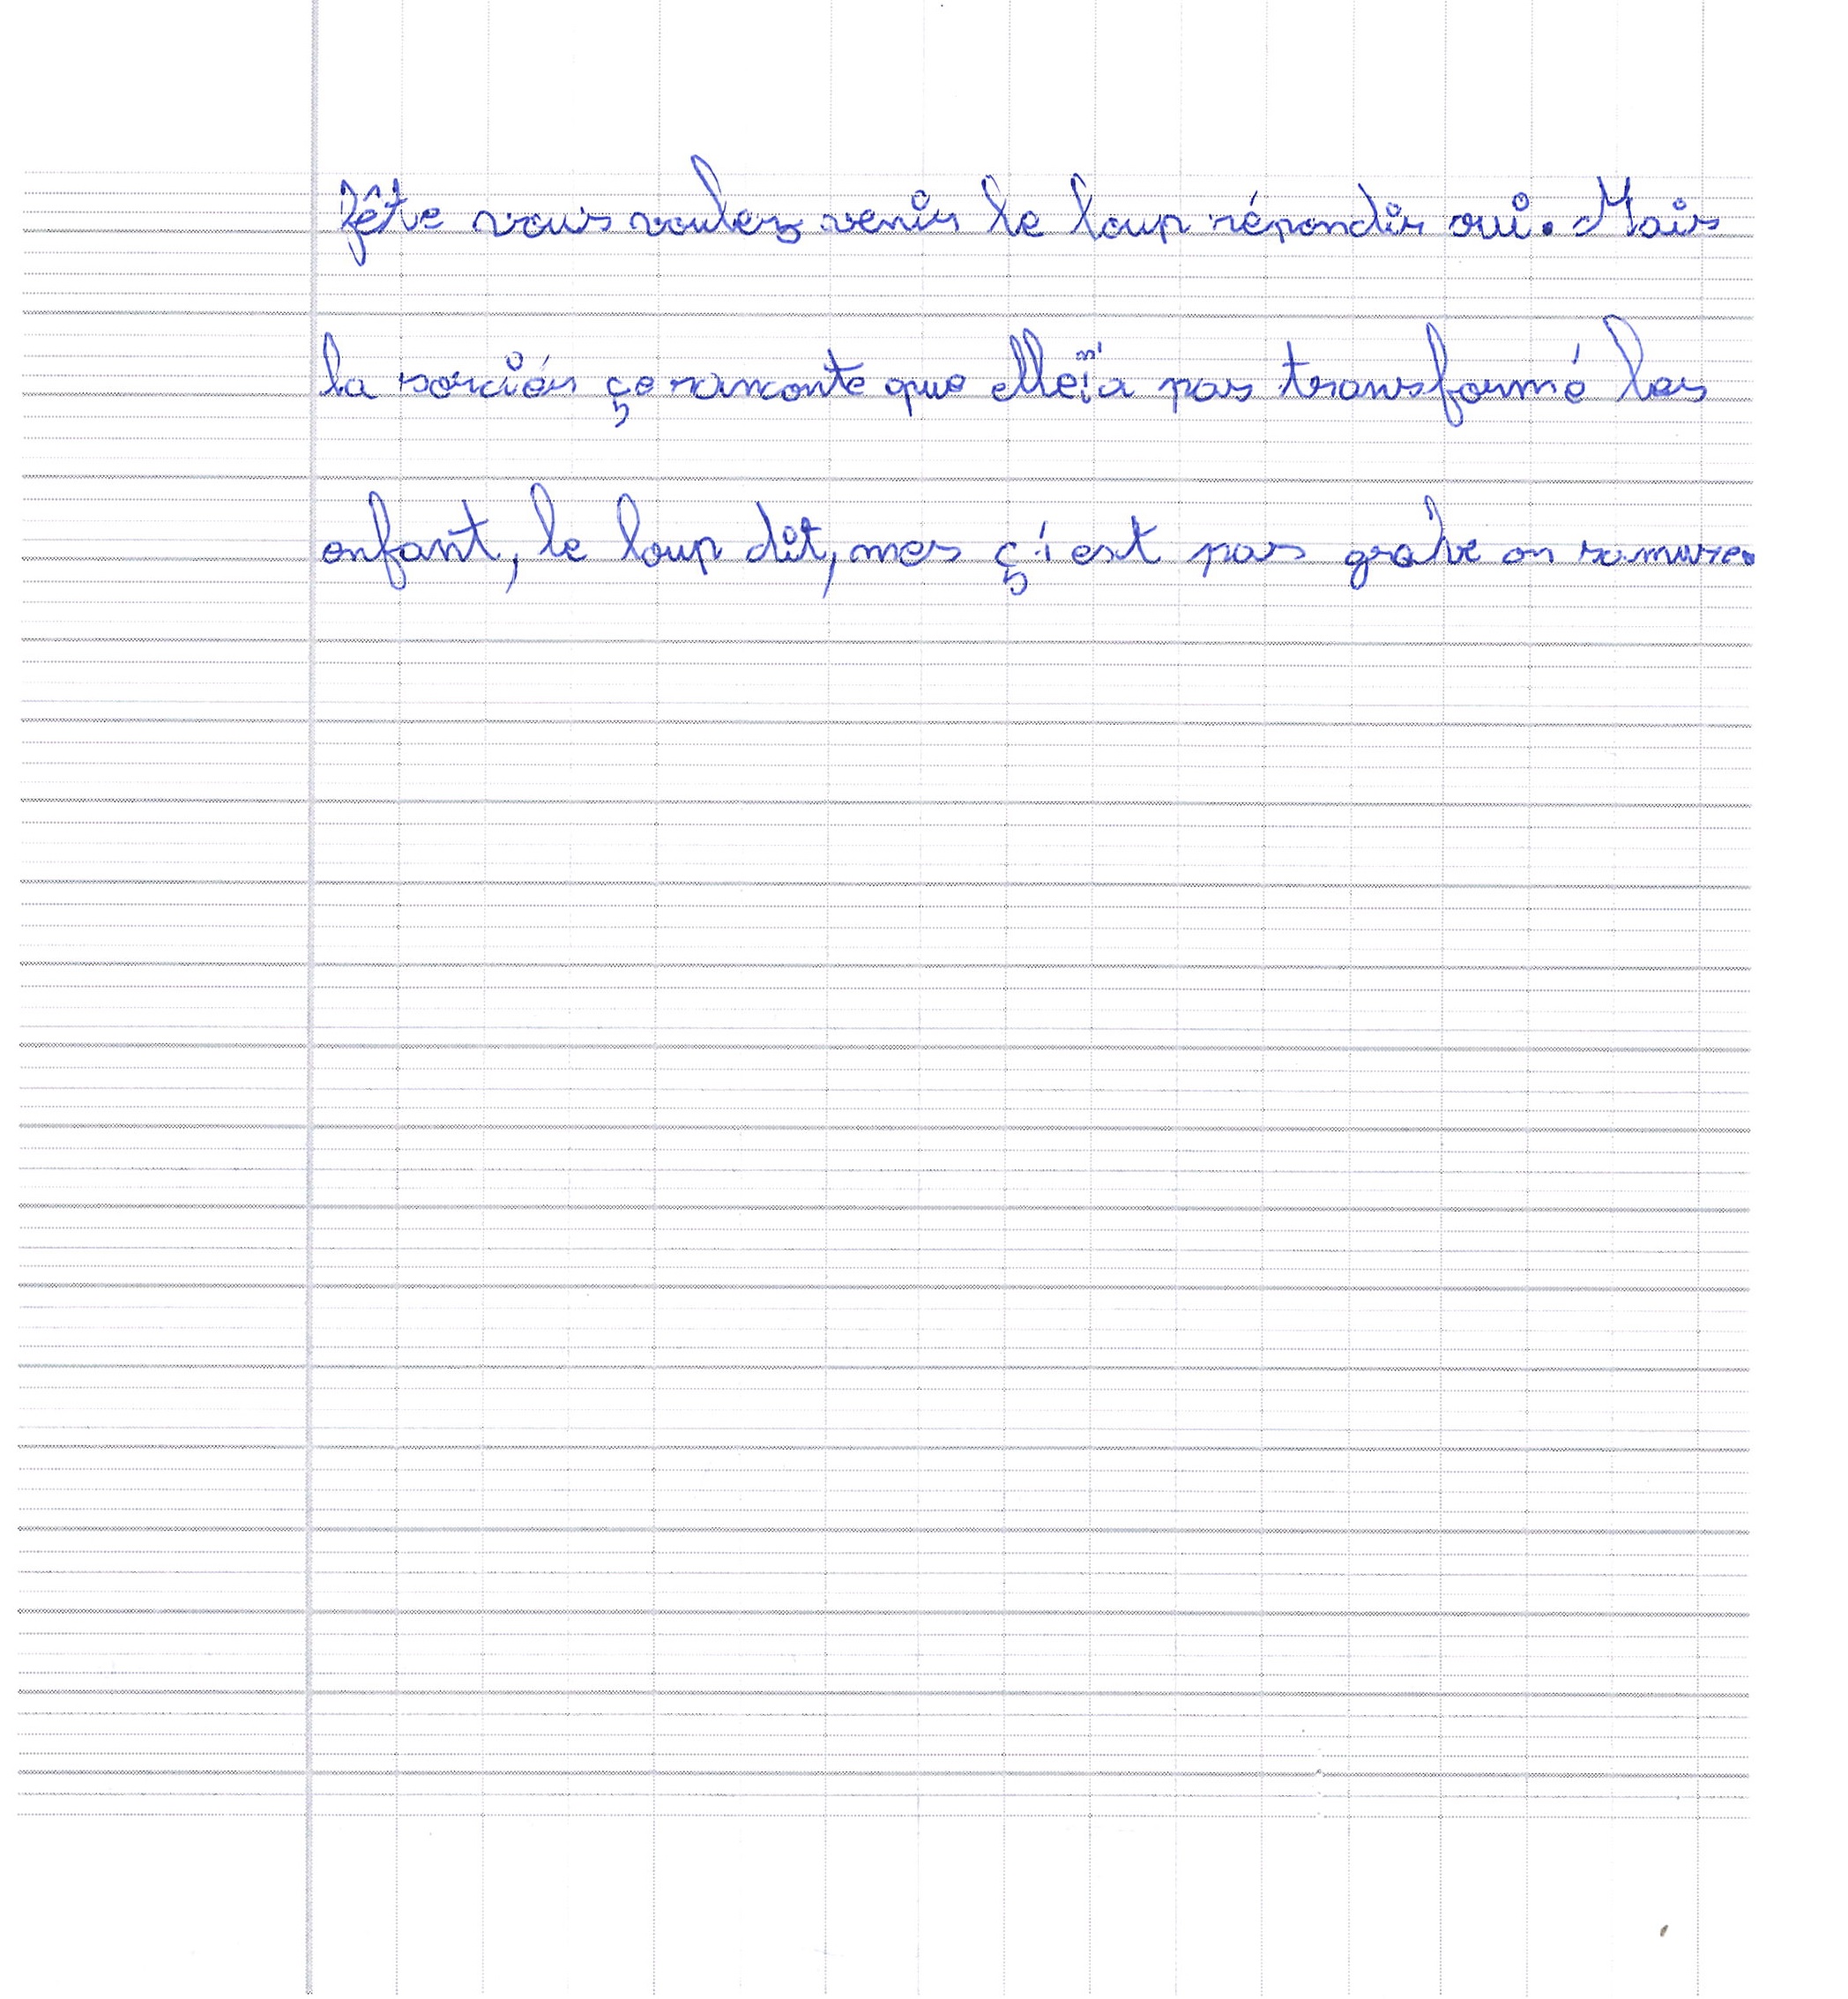 fête vous voulez venir le loup répondis oui. Mais
la sorciér çe ranconte que elle n'a pas transformé les
enfant, le loup dit, mes ç'est pas grave on samuse.